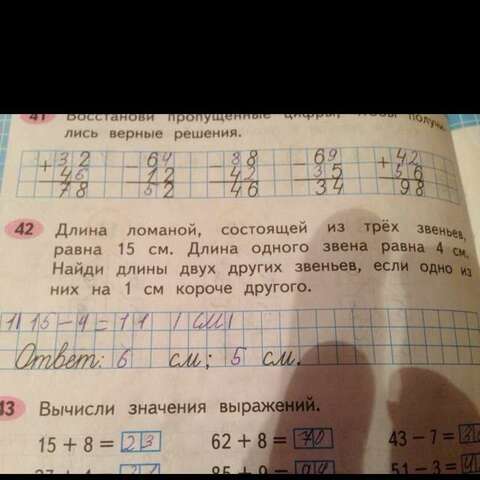 41 Восстанови пропущенные цифры, чтобы получи-
лись верные решения.
+32 -64 -88 -69 +42
46 12 42 35 56
78 52 46 34 98
42 Длина ломаной, состоящей из трёх звеньев,
равна 15 см. Длина одного звена равна 4 см.
Найди длины двух других звеньев, если одно из
них на 1 см короче другого.
1) 15-4=11 (см)
Ответ: 6 см; 5 см.
43 Вычисли значения выражений.
15 + 8 = 23 62 + 8 = 70 43 - 7 = 3
85 + 9 = 94 51 - 3 = 4